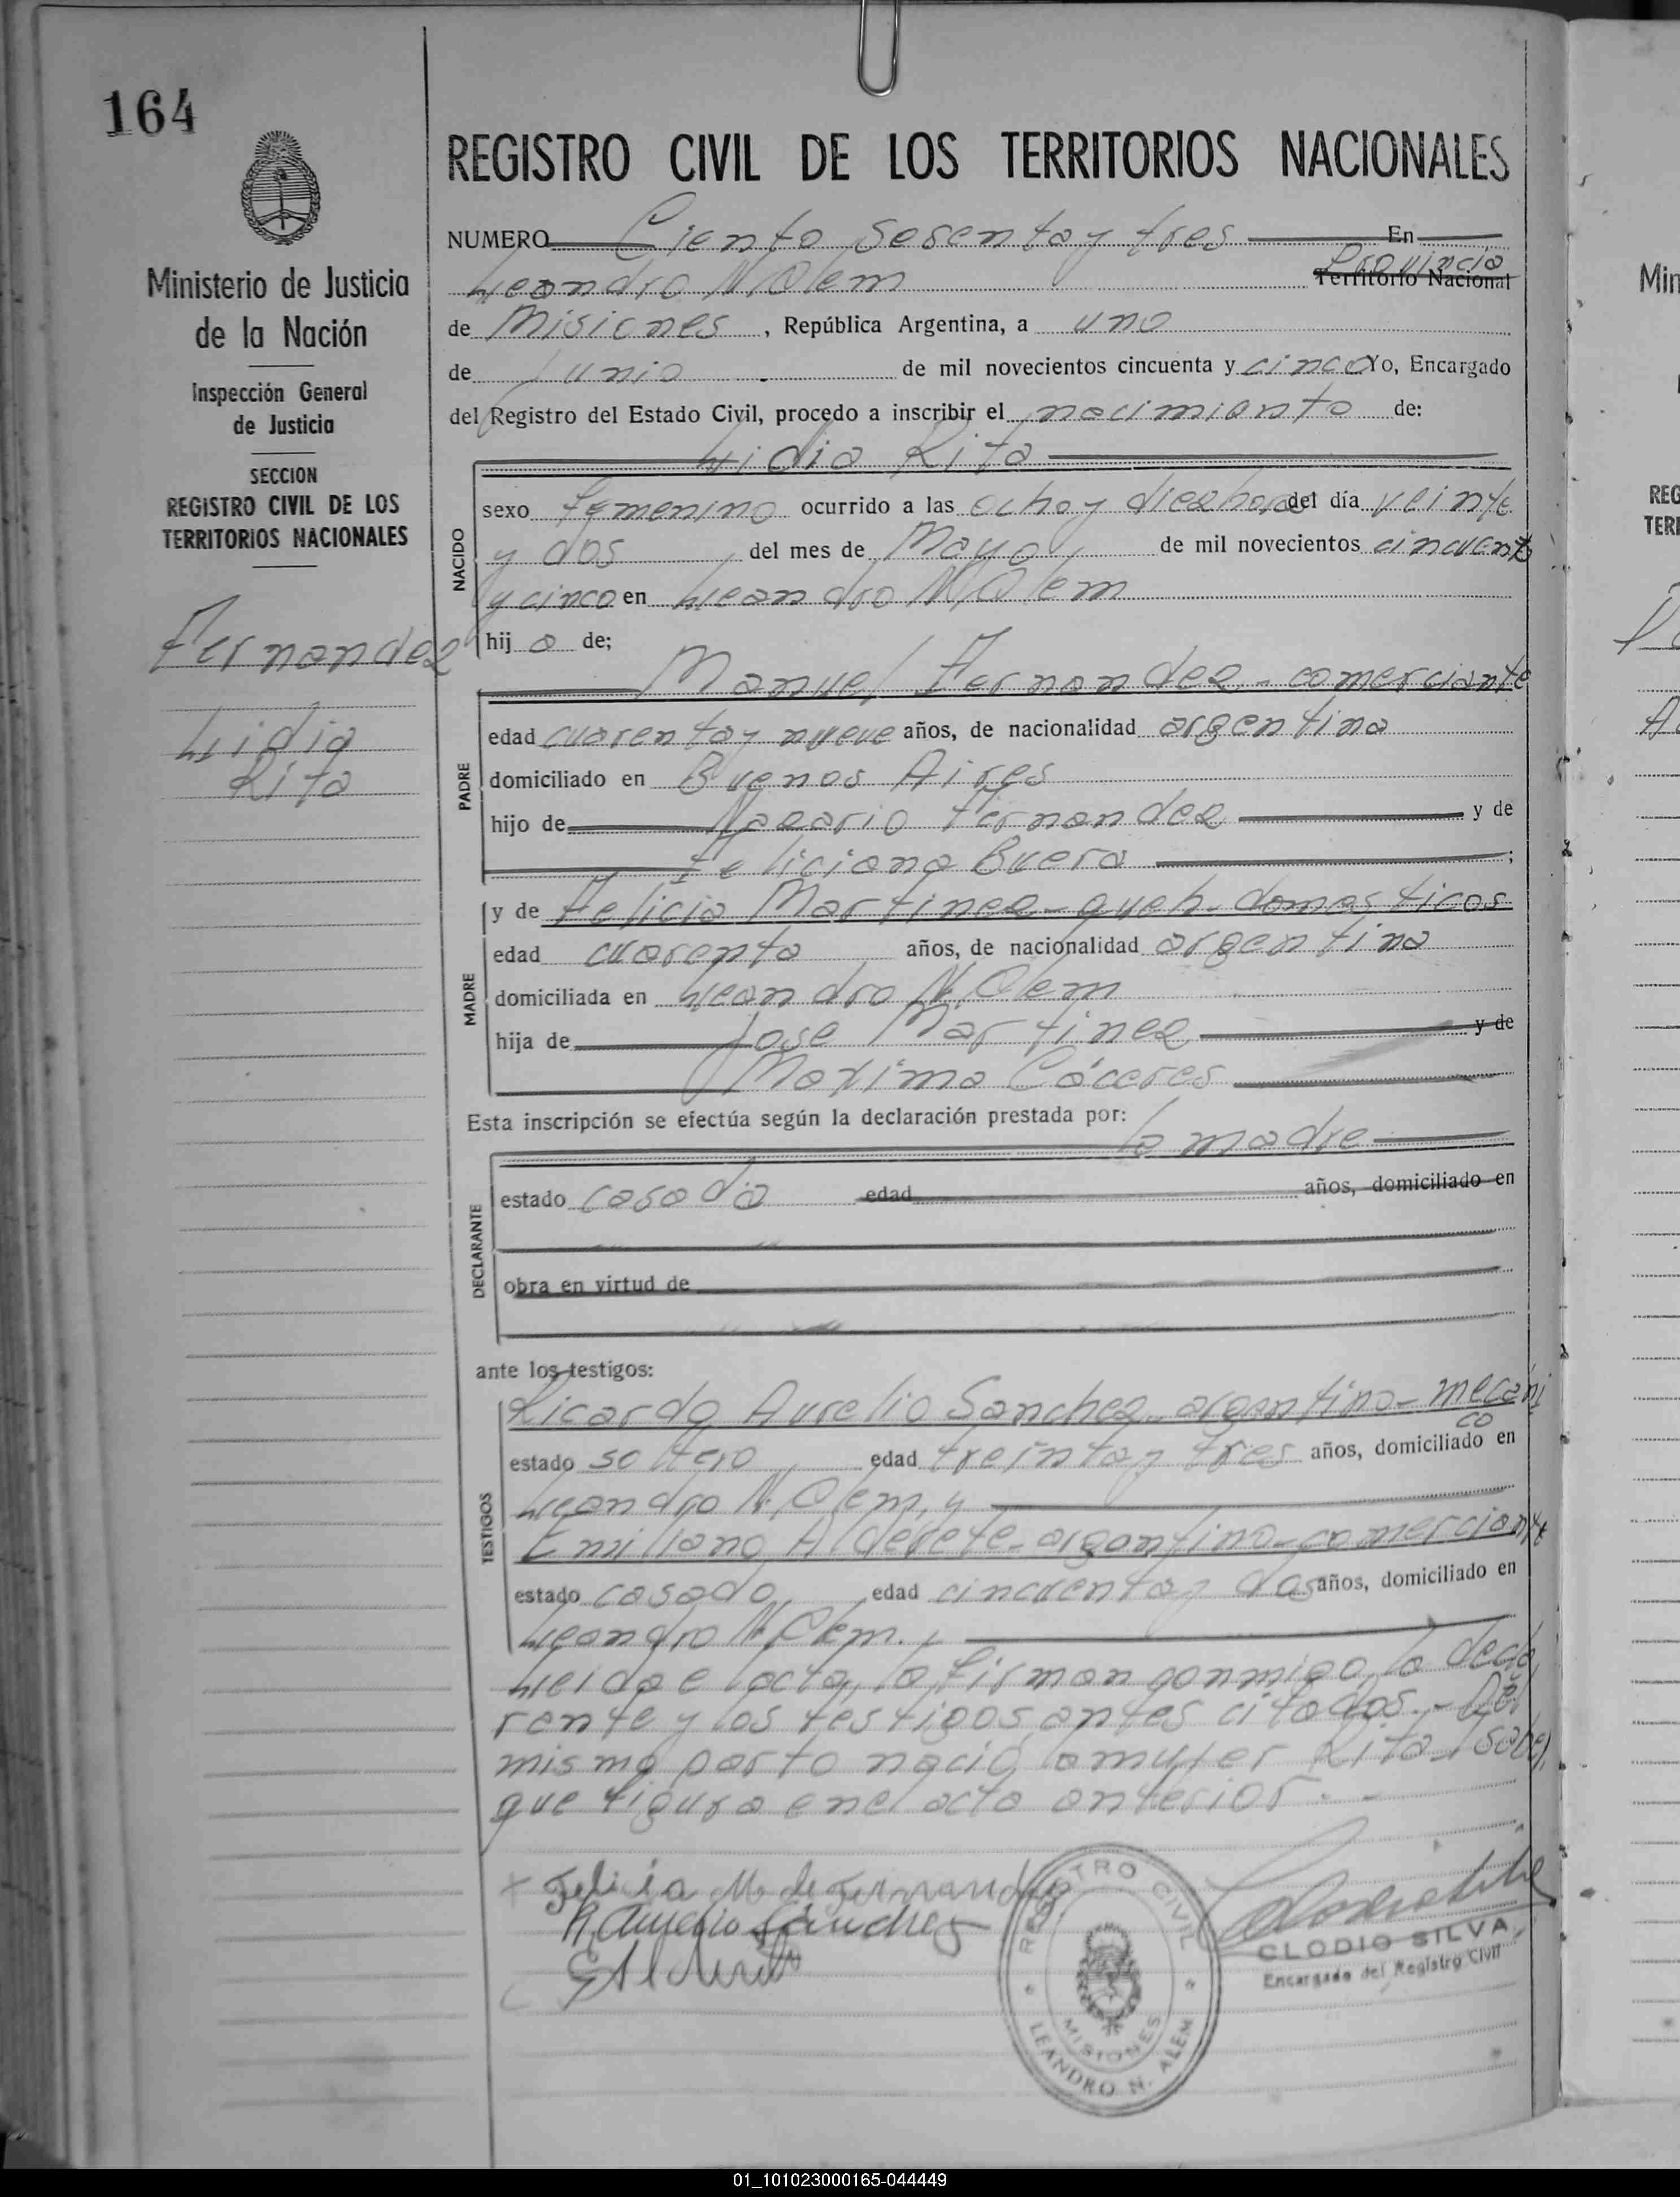 164
REGISTRO CIVIL DE LOS TERRITORIOS NACIONALES
Ministerio de Justicia
de la Nación
Inspección General
de Justicia
SECCION
REGISTRO CIVIL DE LOS
TERRITORIOS NACIONALES
Fernandez
Lidia
Rita
NUMERO Ciento sesenta y tres En
Provincia
Leandro N. Alem Territorio Nacional
de Misiones, República Argentina, a uno
de Junio de mil novecientos cincuenta y cinco Yo, Encargado
del Registro del Estado Civil, procedo a inscribir el nacimiento de:
Lidia Rita
NACIDO
sexo femenino ocurrido a las ocho y diez horas del día veinte
y dos del mes de Mayo de mil novecientos cincuenta
y cinco en Leandro N. Alem
hij a de;
Manuel Fernandez - comerciante
PADRE
edad cuarenta y nueve años, de nacionalidad argentina
domiciliado en Buenos Aires
hijo de Nazario Fernandez y de
Feliciana Buera;
MADRE
y de Felicia Martinez - queh. domesticos
edad cuarenta años, de nacionalidad argentina
domiciliada en Leandro N. Alem
hija de Jose Martinez y de
Maxima Cáceres
Esta inscripción se efectúa según la declaración prestada por:
la madre
DECLARANTE
estado casada edad años, domiciliado en
obra en virtud de
ante los testigos:
TESTIGOS
Ricardo Aurelio Sanchez - argentino - mecáni
co
estado soltero edad treinta y tres años, domiciliado en
Leandro N. Alem, y
Emiliano Alderete - argentino - comerciante
estado casado edad cincuenta y dos años, domiciliado en
Leandro N. Alem.
Leida e lacta, la firman conmigo, la decla
rante y los testigos antes citados. - Del
mismo parto nació la mujer Rita Isabel,
que figura en el acta anterior. -
x Felicia M. de Fernandez
R Aurelio Sánchez
E Alderete
REGISTRO CIVIL
MISIONES
LEANDRO N. ALEM
CLODIO SILVA
Encargado del Registro Civil
Min
REG
TERI
01_101023000165-044449